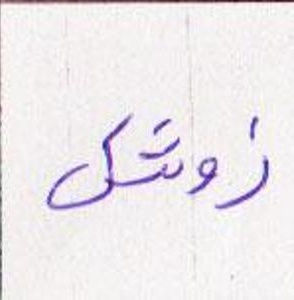 زوشکی